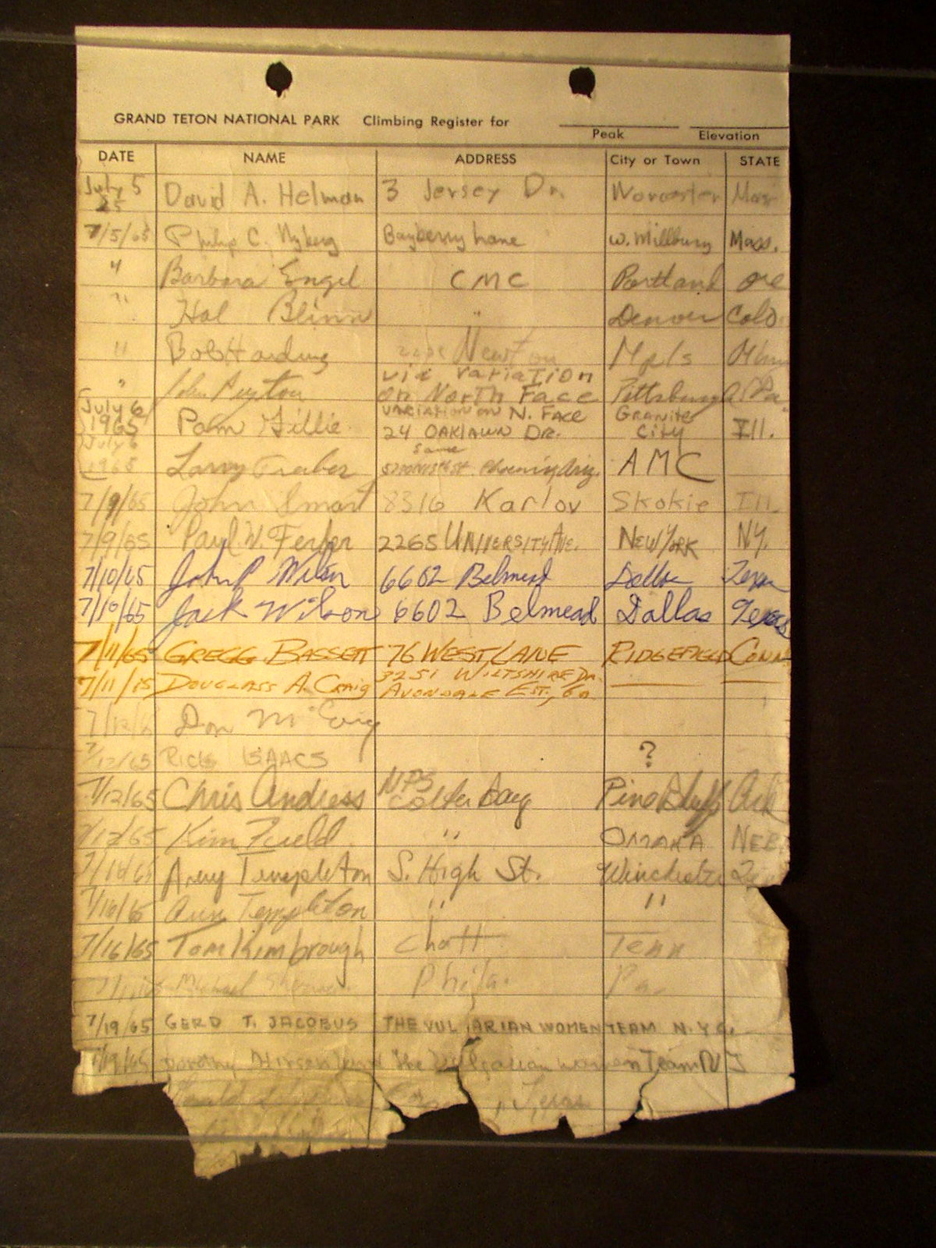 GRAND TETON NATIONAL PARK Climbing Register for
Peak Elevation
DATE NAME ADDRESS City or Town STATE
July 5 David A. Helman 3 Jersey Dr. Worcester Mass
7/5/65 Philip C. Nyberg Bayberry Lane W. Millbury Mass.
" Barbara Engel CMC Portland Ore
" Hal Blinn " Denver Colo
" Bob Harding Newton Mpls
via variation
" John on North Face Pittsburg Pa.
July 6 variation on N. Face Granite
1965 Pam Gillie 24 Oaklawn Dr. City Ill.
July 6 same
1965 Larry Phoenix, Ariz. AMC
7/9/65 John Smart 8316 Karlov Skokie Ill.
7/9/65 Paul W. 2265 University Ave. New York NY.
7/10/65 John P Wilson 6602 Belmead Dallas Texas
7/10/65 Jack Wilson 6602 Belmead Dallas Texas
7/11/65 GREGG BASSETT 76 WEST LANE RIDGEFIELD CONN.
3251 WILTSHIRE DR.
7/11/15 DOUGLASS A. CRAIG AVONDALE EST., GA.
Don
7/12/65 RICK ISAACS ?
NPS
7/12/65 Chris Andress Colter Bay Pine Bluff Ark
Kim " OMAHA NEB.
Templeton S. High St. Winchester
7/16/65 Ann Templeton " "
7/16/65 Tom Kimbrough Chatt Tenn
Michael Phila. Pa.
7/19/65 GERD T. JACOBUS THE VUL ARIAN WOMEN TEAM N.Y.C.
7/19/65 Dorothy the Vulgarian women Team NJ
Texas